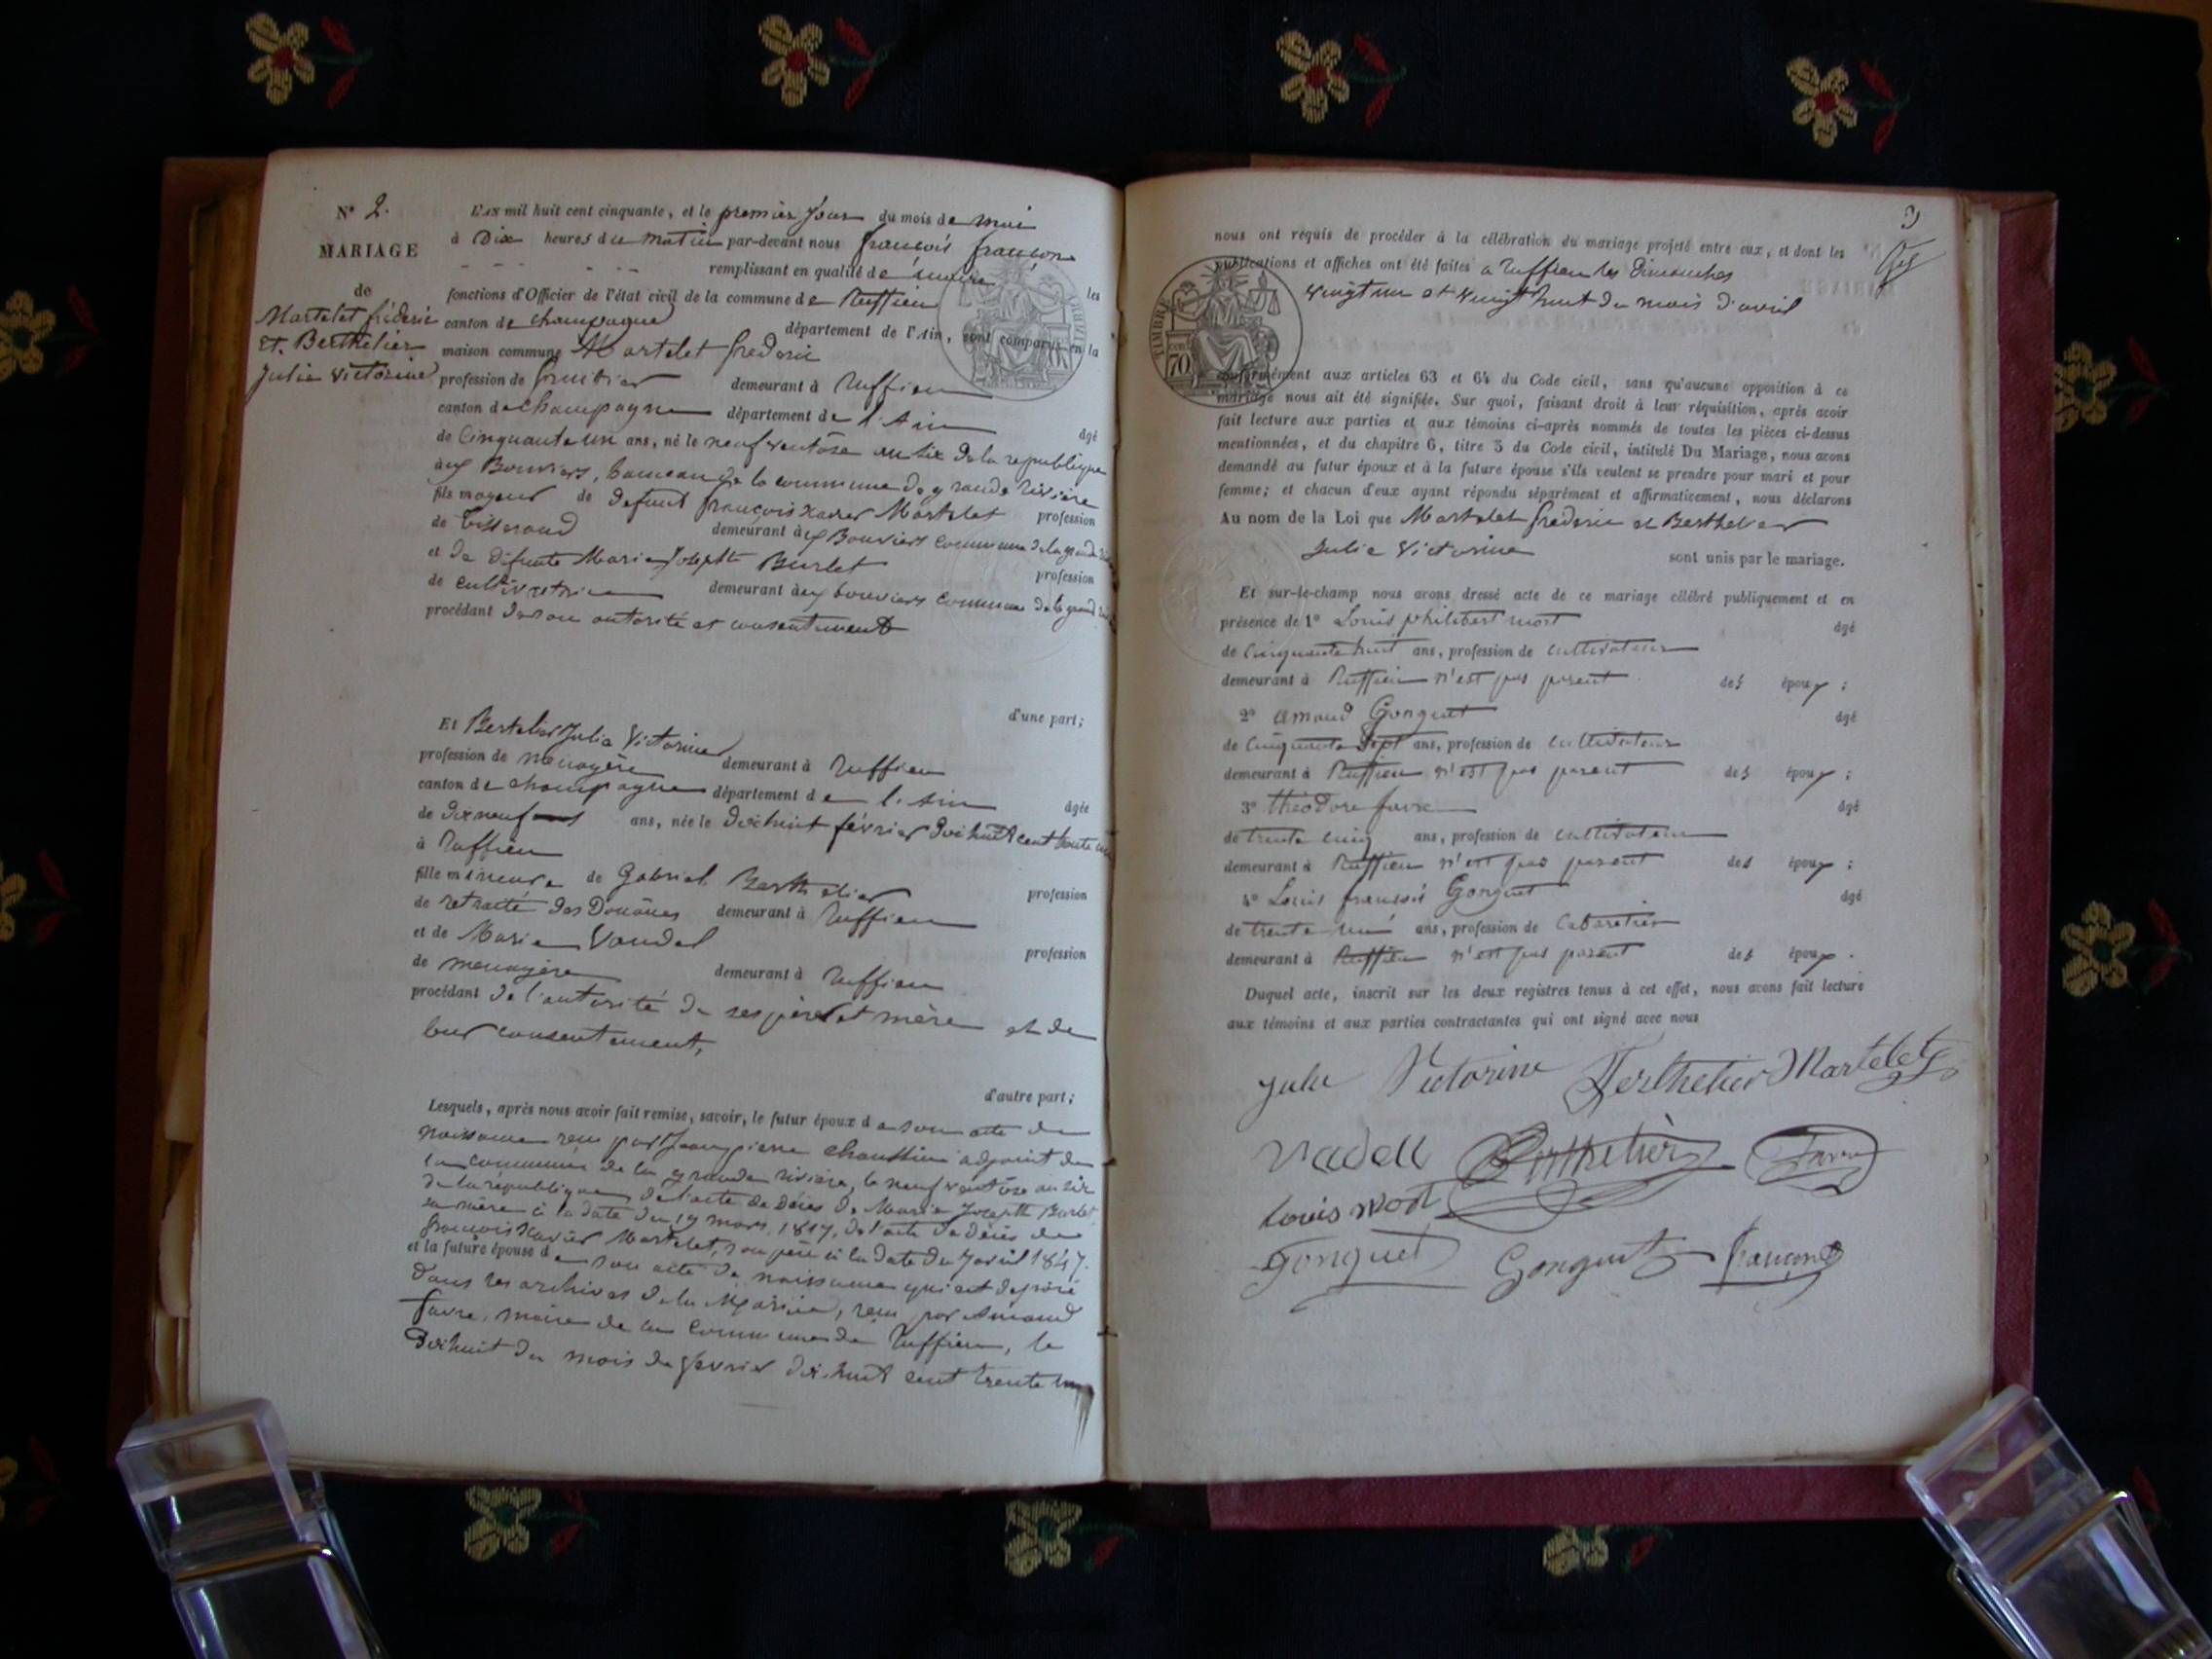 N° 2.
MARIAGE
de
Martelet frédéric
et Berthelier
Julie Victorine
L'AN mil huit cent cinquante, et le premier jour du mois de mai
à Dix heures du matin par-devant nous françois françon
remplissant en qualité de maire les
fonctions d'Officier de l'état civil de la commune de Ruffieu
canton de champagne département de l'Ain, sont comparus en la
maison commune Martelet frederic
profession de fruitier demeurant à Ruffieu
canton de champagne département de l'Ain âgé
de Cinquante un ans, né le neuf ventôse an six de la republique
aux Bouviers, hameau de la commune de grande rivière
fils majeur de defunt françois xavier Martelet profession
de tisserand demeurant aux Bouviers commune de la grande
et de défunte Marie Joseph Burlet profession
de cultivatrice demeurant aux bouviers commune de la grande
procédant de son autorité et consentement
d'une part;
Et Bertelier Julie Victorine
profession de menagère demeurant à Ruffieu
canton de champagne département de l'Ain âgée
de dix neuf ans, née le dix huit février dix huit cent trente un
à Ruffieu
fille mineure de Gabriel Berthelier profession
de retraité des Douânes demeurant à Ruffieu
et de Marie Vaudel profession
de menagère demeurant à Ruffieu
procédant de l'autorité de ses père et mère et de
leur consentement,
d'autre part;
Lesquels, après nous avoir fait remise, savoir, le futur époux de son acte de
naissance reçu par Jean pierre adjoint de
la commune de la grande rivière, le neuf ventôse an six
de la république, de l'acte de décès de Marie Joseph Burlet
sa mère à la date du 19 mars 1817, de l'acte de décès de
françois Xavier Martelet, son père à la date du 7 avril 1847.
et la future épouse de son acte de naissance qui est déposé
dans les archives de la Mairie, reçu par Amand
favre, maire de la commune de Ruffieu, le
dix huit du mois de fevrier dix huit cent trente un
3
nous ont requis de procéder à la célébration du mariage projeté entre eux, et dont les
publications et affiches ont été faites a Ruffieu les dimanches
vingt un et vingt huit du mois d'avril
TIMBRE
70
conformément aux articles 63 et 64 du Code civil, sans qu'aucune opposition à ce
mariage nous ait été signifiée. Sur quoi, faisant droit à leur réquisition, après avoir
fait lecture aux parties et aux témoins ci-après nommés de toutes les pièces ci-dessus
mentionnées, et du chapitre 6, titre 5 du Code civil, intitulé Du Mariage, nous avons
demandé au futur époux et à la future épouse s'ils veulent se prendre pour mari et pour
femme; et chacun d'eux ayant répondu séparément et affirmativement, nous déclarons
Au nom de la Loi que Martelet frederic et Berthelier
Julie Victorine sont unis par le mariage.
Et sur-le-champ nous avons dressé acte de ce mariage célébré publiquement et en
présence de 1° Louis philibert mort âgé
de Cinquante huit ans, profession de cultivateur
demeurant à Ruffieu n'est pas parent des époux;
2° Amand Gonguet âgé
de Cinquante sept ans, profession de cultivateur
demeurant à Ruffieu n'est pas parent des époux;
3° théodore favre âgé
de trente cinq ans, profession de cultivateur
demeurant à Ruffieu n'est pas parent des époux;
4° Louis françois Gonguet âgé
de trente un ans, profession de Cabaretier
demeurant à Ruffieu n'est pas parent des époux.
Duquel acte, inscrit sur les deux registres tenus à cet effet, nous avons fait lecture
aux témoins et aux parties contractantes qui ont signé avec nous
Julie Victorine Berthelier Martelet
Vadell Berthelier Favre
Louis mort
Gonguet Gonguet françon